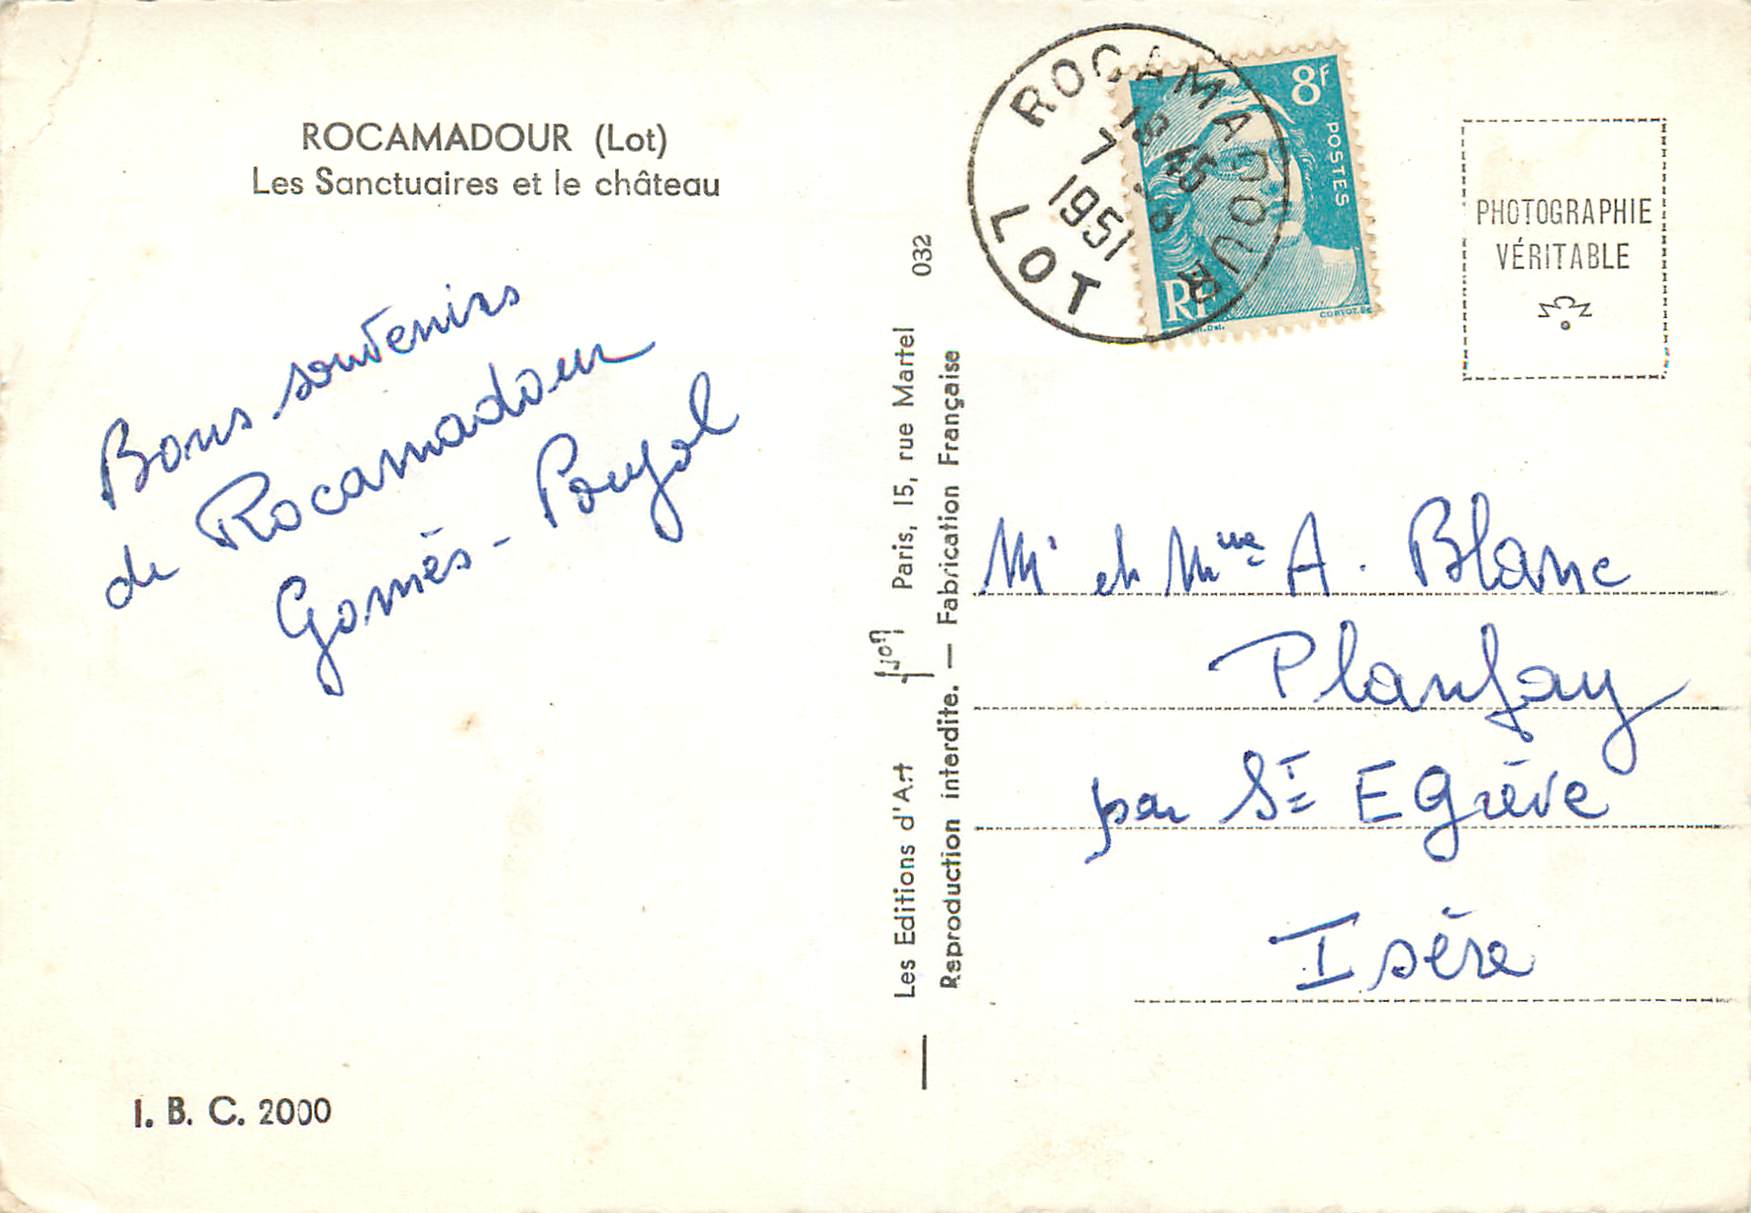 ROCAMADOUR (Lot)
Les Sanctuaires et le château
Bons souvenirs
de Rocamadour
Gomès - Poujol
I. B. C. 2000
Les Editions d'Art Yvon Paris, 15, rue Martel 032
Reproduction interdite. — Fabrication Française
ROCAMADOUR
18 45
7 - 8
1951
LOT
8F
POSTES
RF
PHOTOGRAPHIE
VÉRITABLE
Mr et Mme A. Blanc
Planfay
par St Egrève
Isère